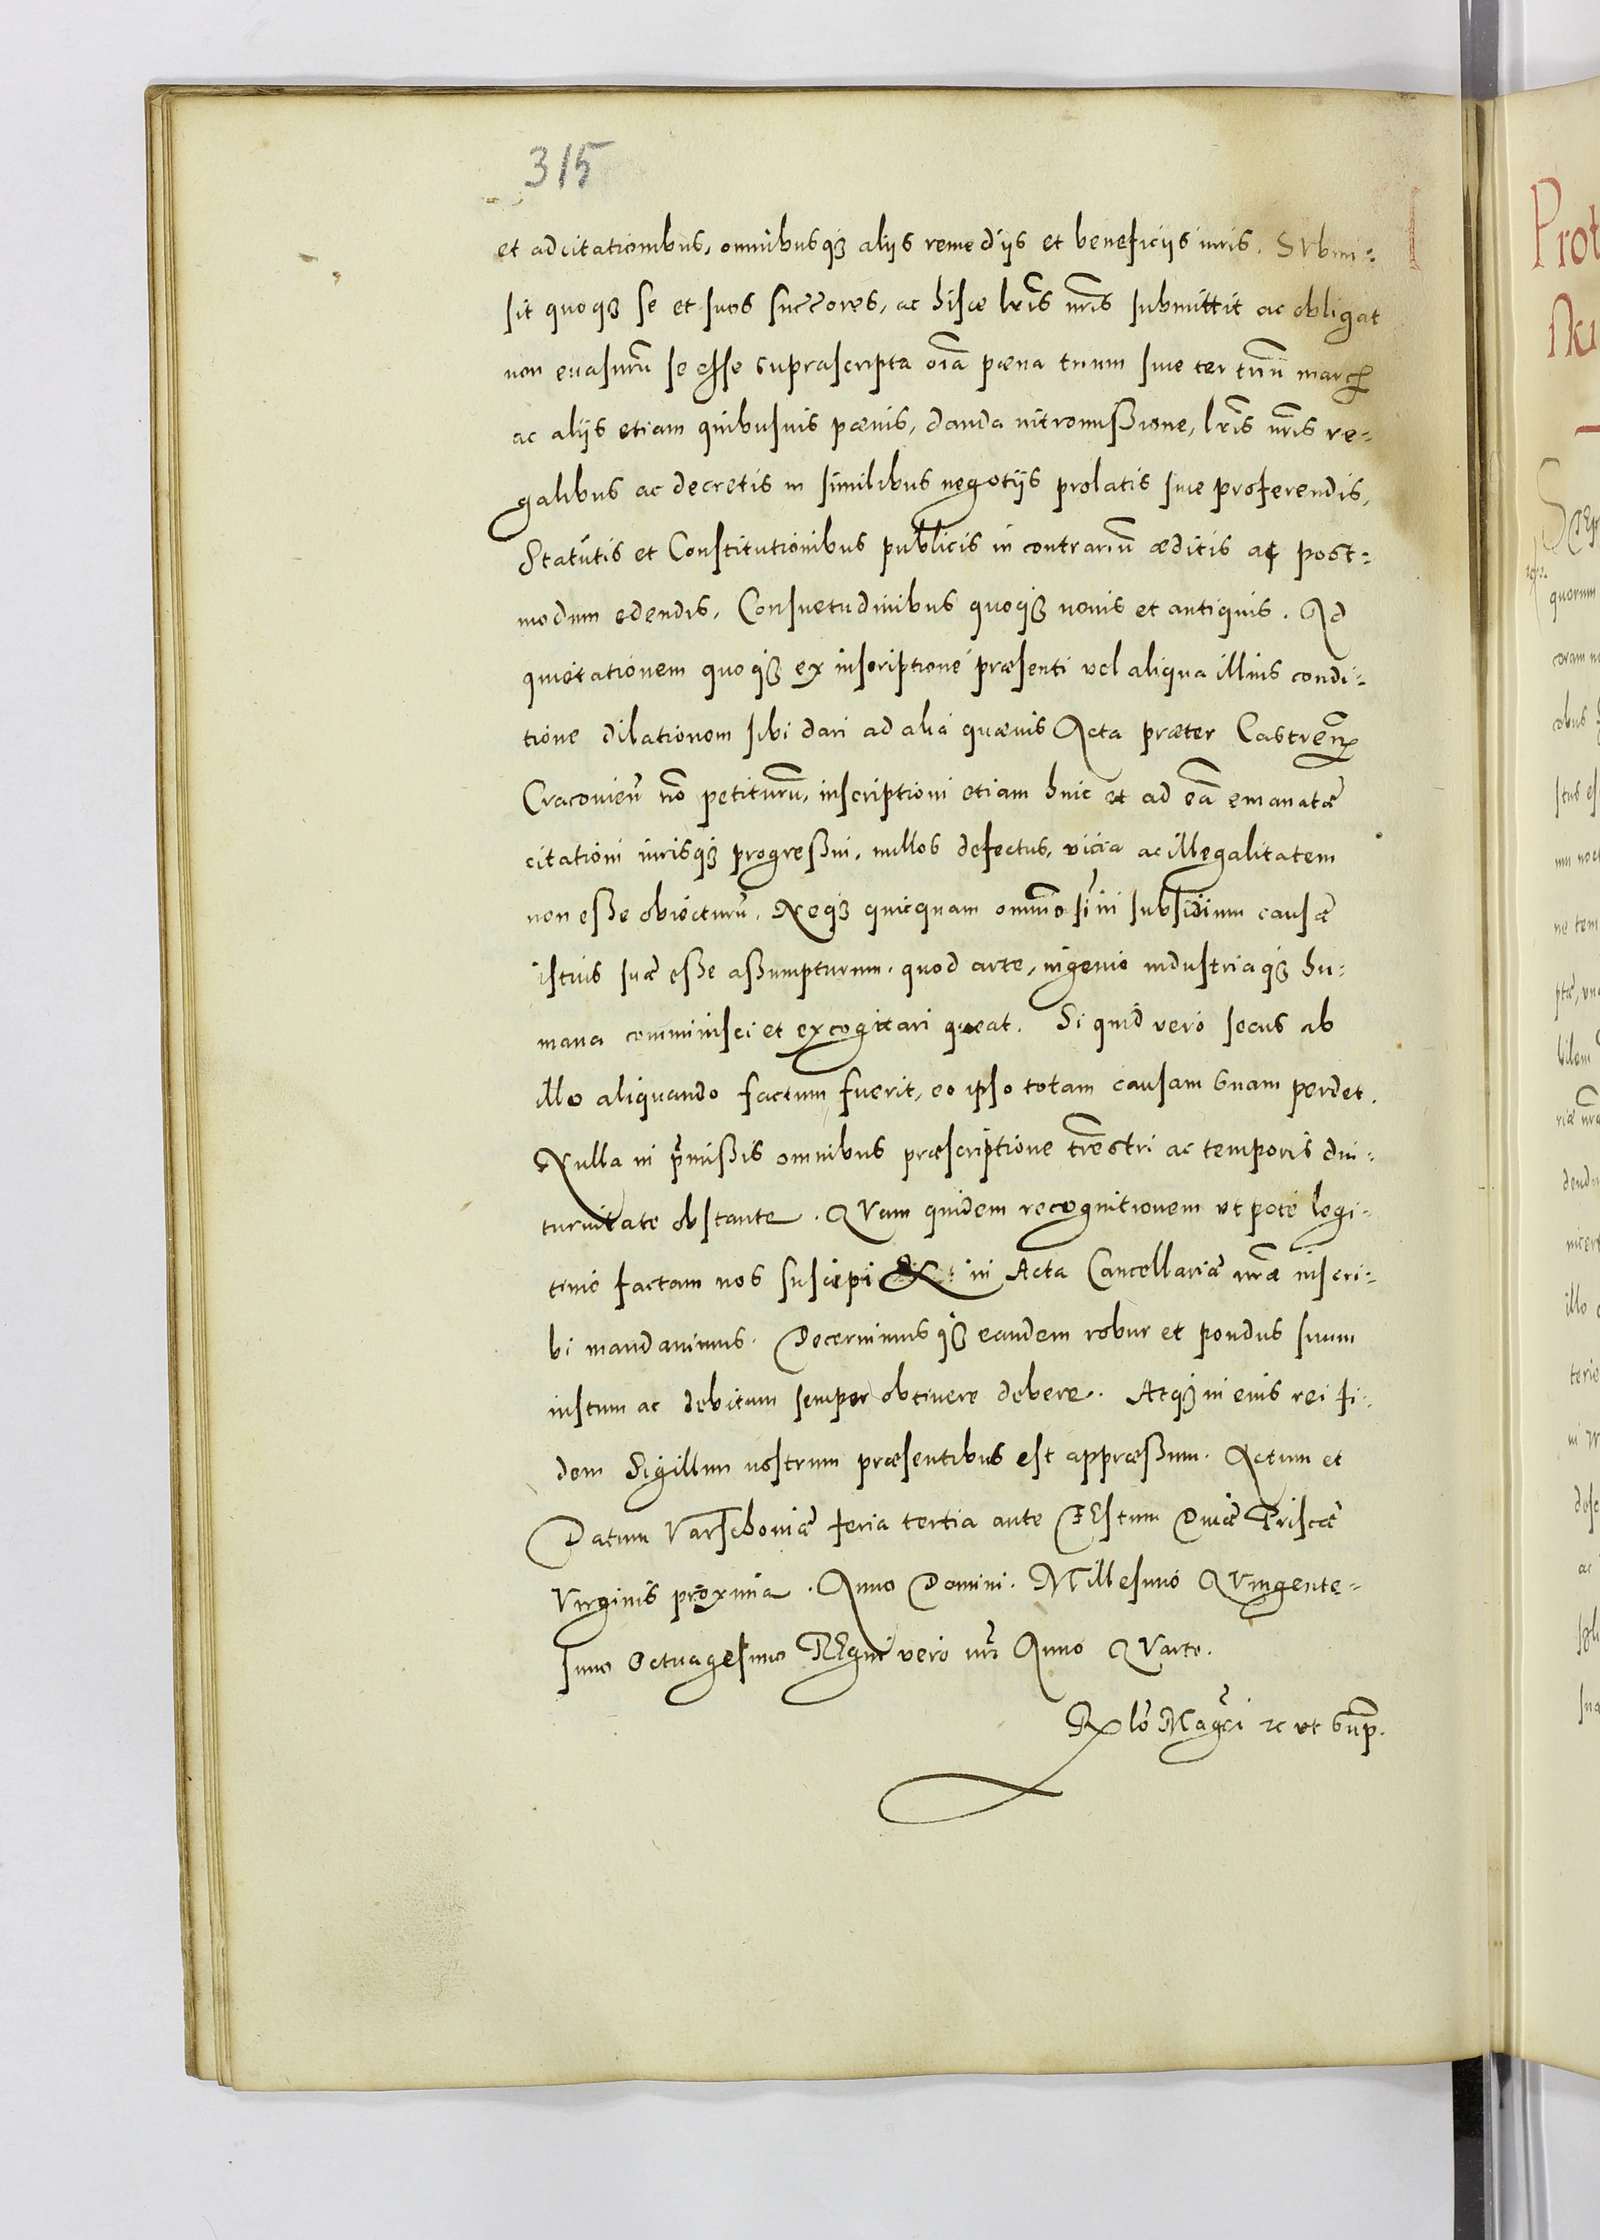 315
et adcitationibus, omnibusq₃ aliis remediis et beneficiis iuris. SVbmi-
sit quoq₃ se et suos succōres, ac hisce lr̃is nr̃is submittit ac obligat
non euasurũ se esse suprascripta oĩa pæna trium siue ter
ac aliis etiam quibusuis pænis, danda intromissione, lr̃is nr̃is re-
galibus ac decretis in similibus negotiis prolatis siue proferendis,
Statutis et Constitutionibus publicis in contrariũ æditis ac post-
modum edendis, Consuetudinibus quoq₃ nouis et antiquis. Ad
quietationem quoq₃ ex inscriptione præsenti vel aliqua illius condi-
tione dilationem sibi dari ad alia quæuis Acta præter Castren̄
Cracouien̄ nō petiturũ, inscriptioni etiam huic et ad eã emanatæ
citationi iurisq₃ progressui, nullos defectus, vicia ac illegalitatem
non esse obiecturũ. Neq₃ quicquam omnino in subsidium causæ
istius suæ esse assumpturum. quod arte, ingenio industriaq₃ hu-
mana comminisci et excogitari queat. Si quid vero secus ab
illo aliquando factum fuerit, eo ipso totam causam suam perdet.
Nulla in p̃missis omnibus præscriptione tr̃estri ac temporis diu-
turnitate obstante. QVam quidem recognitionem vt pote legi-
time factam nos suscepi & in Acta Cancellariæ nr̃æ inscri-
bi mandauimus. Decernimusq₃ eandem robur et pondus suum
iustum ac debitum semper obtinere debere. Atq₃ in eius rei fi-
dem Sigillum nostrum præsentibus est appræssum. Actum et
Datum Varschouiæ feria tertia ante FEstum Diuæ Priscæ
Virginis proxima. Anno Domini. Millesimo QVingente-
simo Octuagesimo REgni vero nr̃i Anno QVarto.
Rēlo Mag͂ci rc vt sup̄.
Prot
quorum
coram
ne tem
bilem
illo
ac